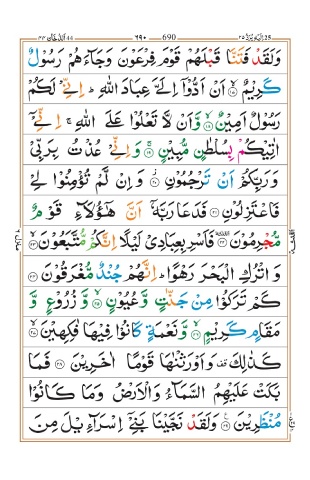 690 ٦٩٠
وَلَقَدْ فَتَنَّا قَبْلَهُمْ قَوْمَ فِرْعَوْنَ وَجَآءَهُمْ رَسُوْلٌ
كَرِيْمٌ ۙ﴿۱۷﴾ اَنْ اَدُّوْۤا اِلَیَّ عِبَادَ اللّٰهِ ؕ اِنِّیْ لَكُمْ
رَسُوْلٌ اَمِیْنٌ ۙ﴿۱۸﴾ وَّاَنْ لَّا تَعْلُوْا عَلَی اللّٰهِ ۚ اِنِّیْۤ
اٰتِیْكُمْ بِسُلْطٰنٍ مُّبِیْنٍ ۚ﴿۱۹﴾ وَاِنِّیْ عُذْتُ بِرَبِّیْ
وَرَبِّكُمْ اَنْ تَرْجُمُوْنِ ۫﴿۲۰﴾ وَاِنْ لَّمْ تُؤْمِنُوْا لِیْ
فَاعْتَزِلُوْنِ ﴿۲۱﴾ فَدَعَا رَبَّهٗۤ اَنَّ هٰۤؤُلَآءِ قَوْمٌ
مُّجْرِمُوْنَ ﴿۲۲﴾ فَاَسْرِ بِعِبَادِیْ لَیْلًا اِنَّكُمْ مُّتَّبَعُوْنَ ۙ﴿۲۳﴾
وَاتْرُكِ الْبَحْرَ رَهْوًا ؕ اِنَّهُمْ جُنْدٌ مُّغْرَقُوْنَ ﴿۲۴﴾
كَمْ تَرَكُوْا مِنْ جَنّٰتٍ وَّعُیُوْنٍ ۙ﴿۲۵﴾ وَّزُرُوْعٍ وَّ
مَقَامٍ كَرِیْمٍ ۙ﴿۲۶﴾ وَّنَعْمَةٍ كَانُوْا فِیْهَا فٰكِهِیْنَ ۙ﴿۲۷﴾
كَذٰلِكَ ۫ وَاَوْرَثْنٰهَا قَوْمًا اٰخَرِیْنَ ﴿۲۸﴾ فَمَا
بَكَتْ عَلَیْهِمُ السَّمَآءُ وَالْاَرْضُ وَمَا كَانُوْا
مُنْظَرِیْنَ ﴿۲۹﴾ وَلَقَدْ نَجَّیْنَا بَنِیْۤ اِسْرَآءِیْلَ مِنَ